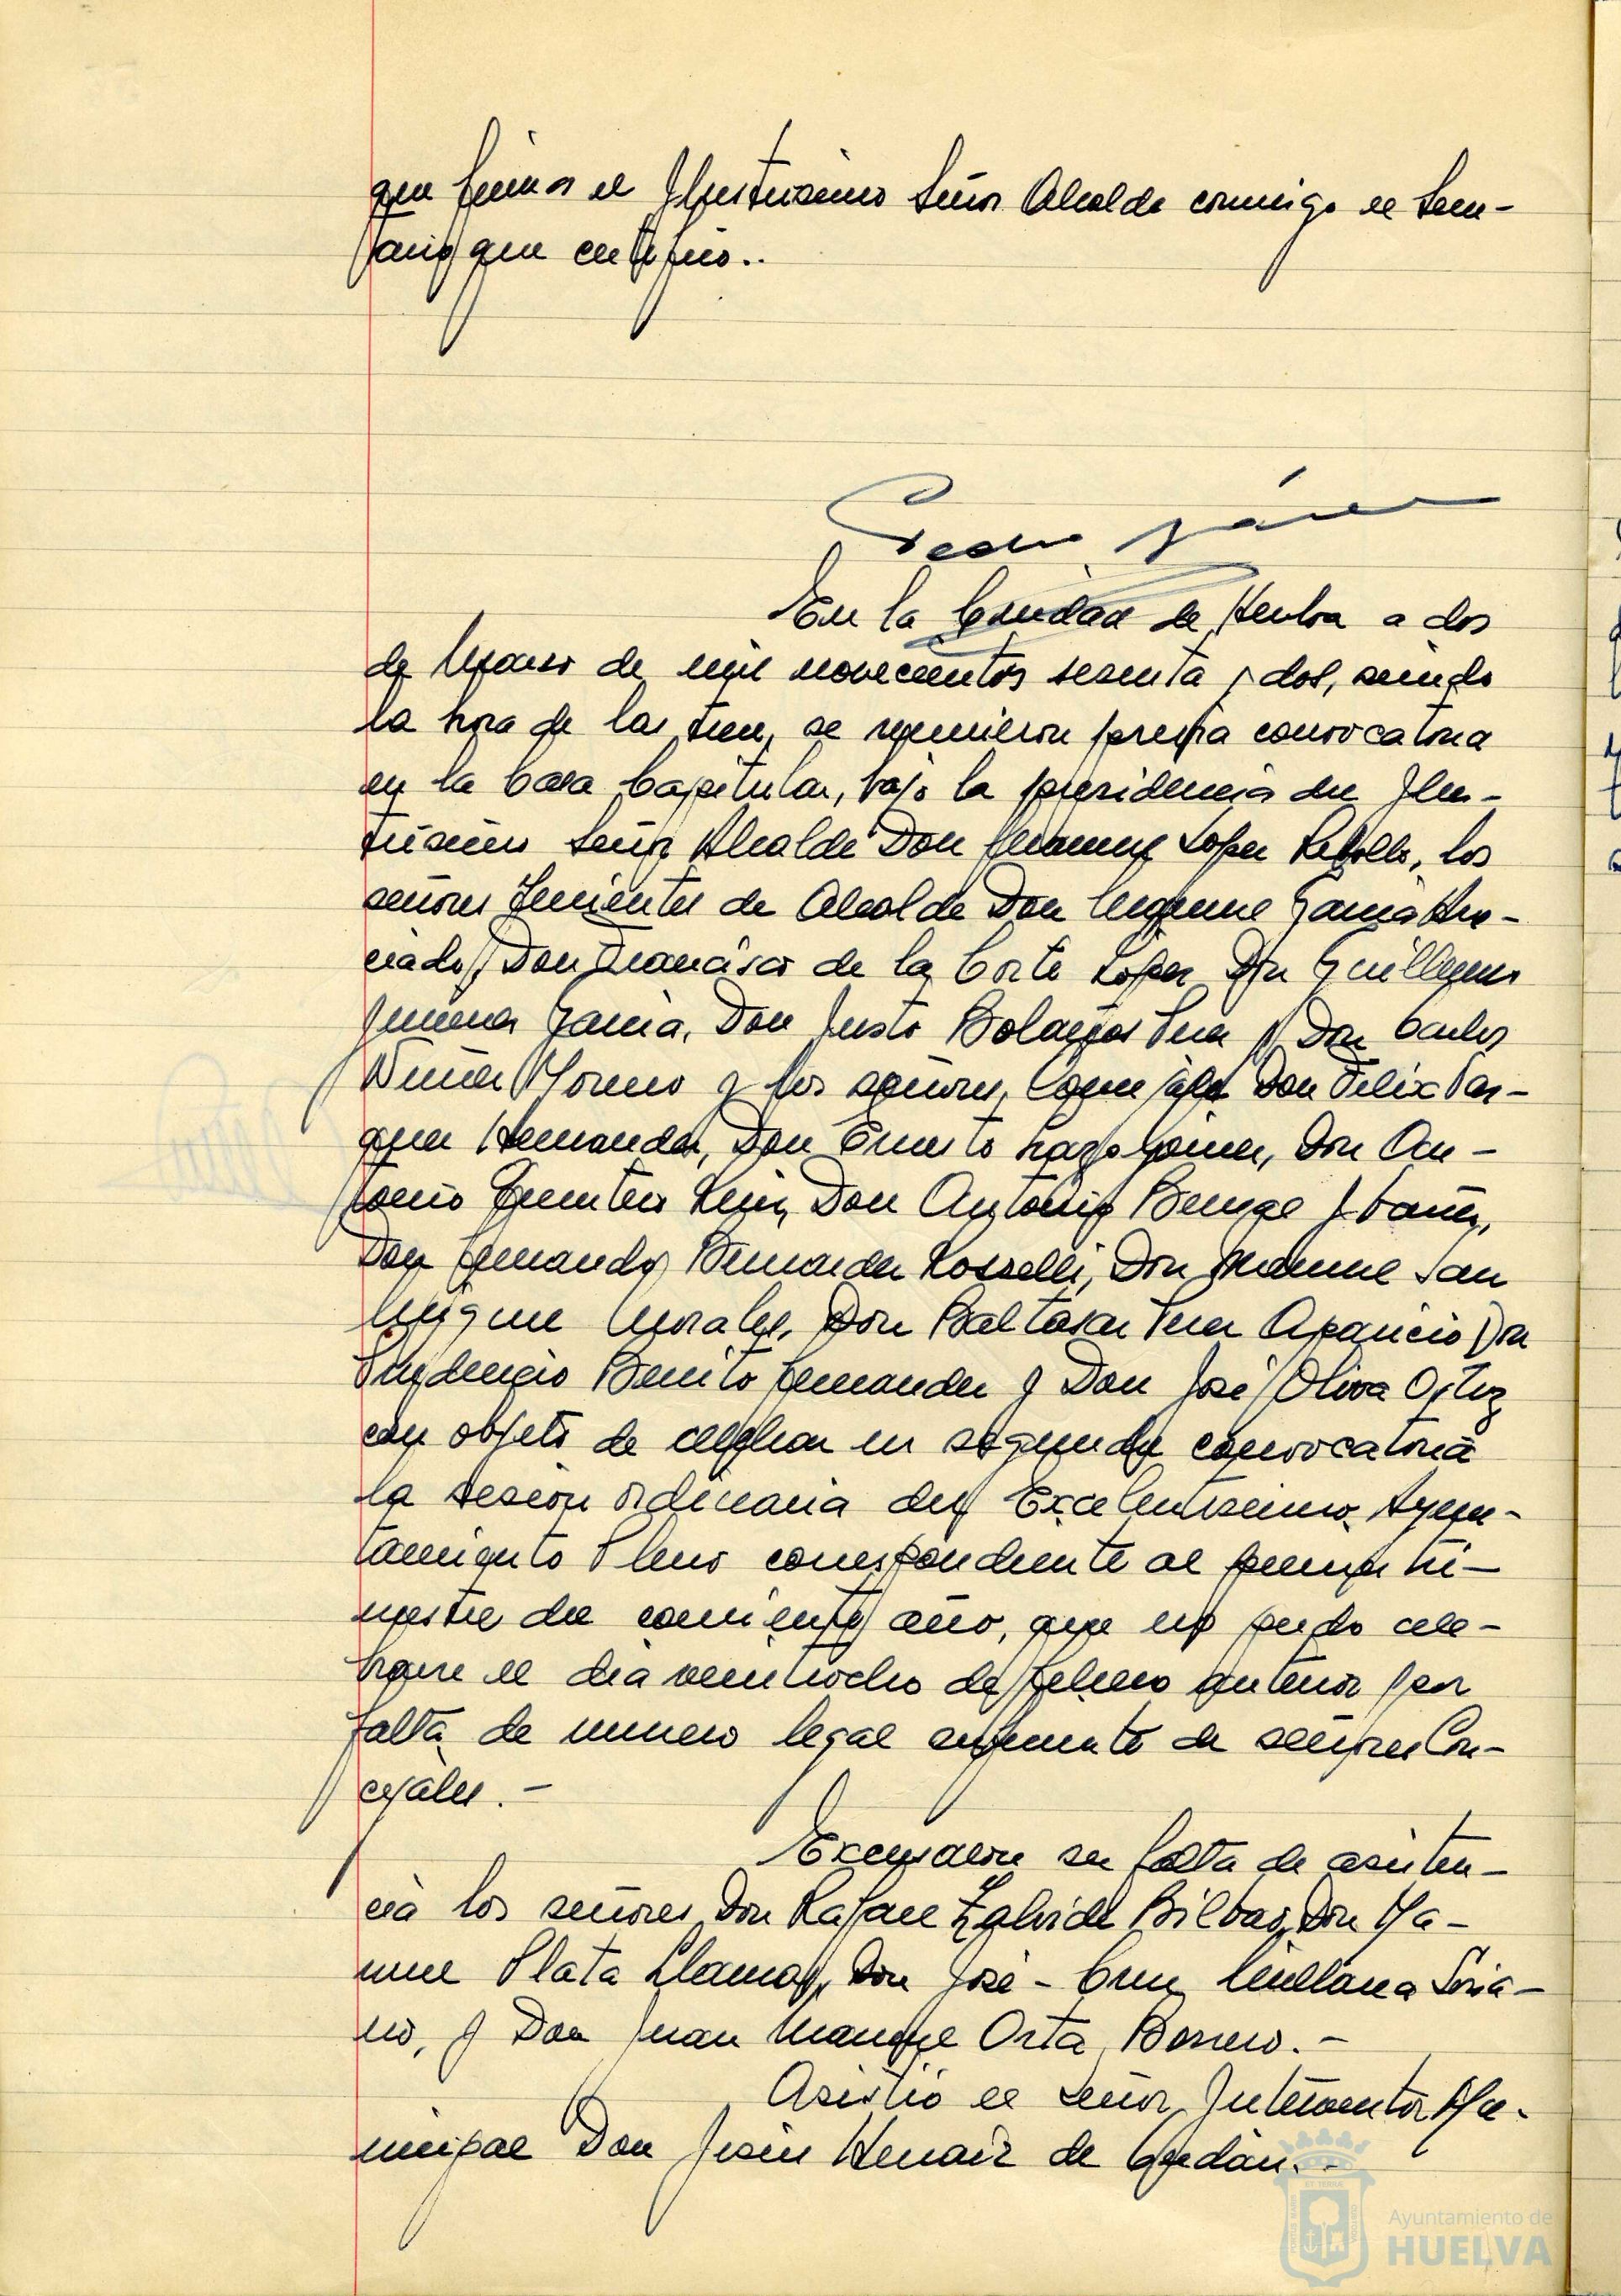 que firma el Ilustrisimo Señor Alcalde conmigo el Secre-
tario que certifico..
Pedro
En la Ciudad de Huelva a dos
de Marzo de mil novecientos sesenta y dos, siendo
la hora de las trece, se reunieron previa convocatoria
en la Casa Capitular, bajo la presidencia del Ilus-
trisimo Señor Alcalde Don Manuel Lopez Rebollo, los
señores Tenientes de Alcalde Don Miguel Garcia
Don Francisco de la Corte Lopez, Don Guillermo
Jimenez Garcia, Don Justo Bolaños Perez y Don Carlos
Nuñez Moreno y los señores Concejales Don Felix Vaz-
quez Hernandez, Don Ernesto Lazo Gomez, Don An-
tonio Fuentes Don Antonio Ibañez,
Don Fernando Bermudez Rosselli, Don Manuel San
Miguel Morales, Don Baltasar Perez Aparicio, Don
Prudencio Benito Fernandez y Don José Oliva Ortiz
con objeto de celebrar en segunda convocatoria
la sesion ordinaria del Excelentisimo Ayun-
tamiento Pleno correspondiente al primer tri-
mestre del corriente año, que no pudo cele-
brarse el dia veintiocho de febrero anterior por
falta de numero legal suficiente de señores Con-
cejales.-
Excusaron su falta de asisten-
cia los señores Don Rafael Zalvide Bilbao, Don Ma-
nuel Plata Llamas, Don José-Cruz Millana Soria-
no, y Don Juan Manuel Orta Borrero.-
Asistio el Señor Interventor Mu-
nicipal Don Jesús Henaiz de
Ayuntamiento de
HUELVA